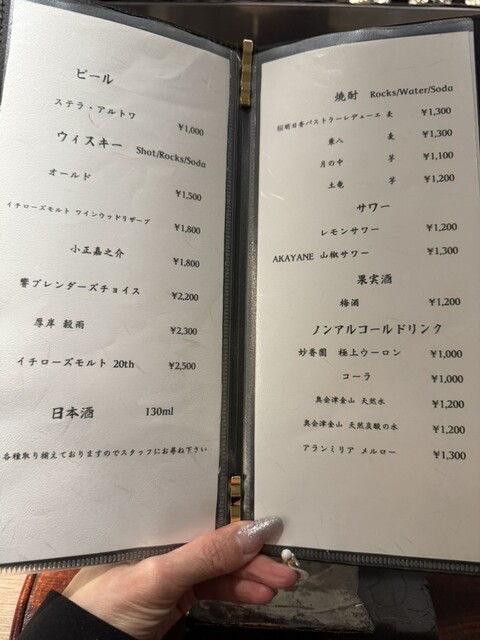 ビール
ステラ・アルトワ ¥1,000
ウィスキー Shot/Rocks/Soda
オールド ¥1,500
イチローズモルト ワインウッドリザーブ ¥1,800
小正嘉之介 ¥1,800
響ブレンダーズチョイス ¥2,200
厚岸 穀雨 ¥2,300
イチローズモルト 20th ¥2,500
日本酒 130ml
各種取り揃えておりますのでスタッフにお尋ね下さい
焼酎 Rocks/Water/Soda
朝日香パストラーレデューエ 麦 ¥1,300
兼八 麦 ¥1,300
月の中 芋 ¥1,100
土竜 芋 ¥1,200
サワー
レモンサワー ¥1,200
AKAYANE 山椒サワー ¥1,300
果実酒
梅酒 ¥1,200
ノンアルコールドリンク
妙香園 極上ウーロン ¥1,000
コーラ ¥1,000
奥会津金山 天然水 ¥1,200
奥会津金山 天然炭酸の水 ¥1,200
アランミリア メルロー ¥1,300